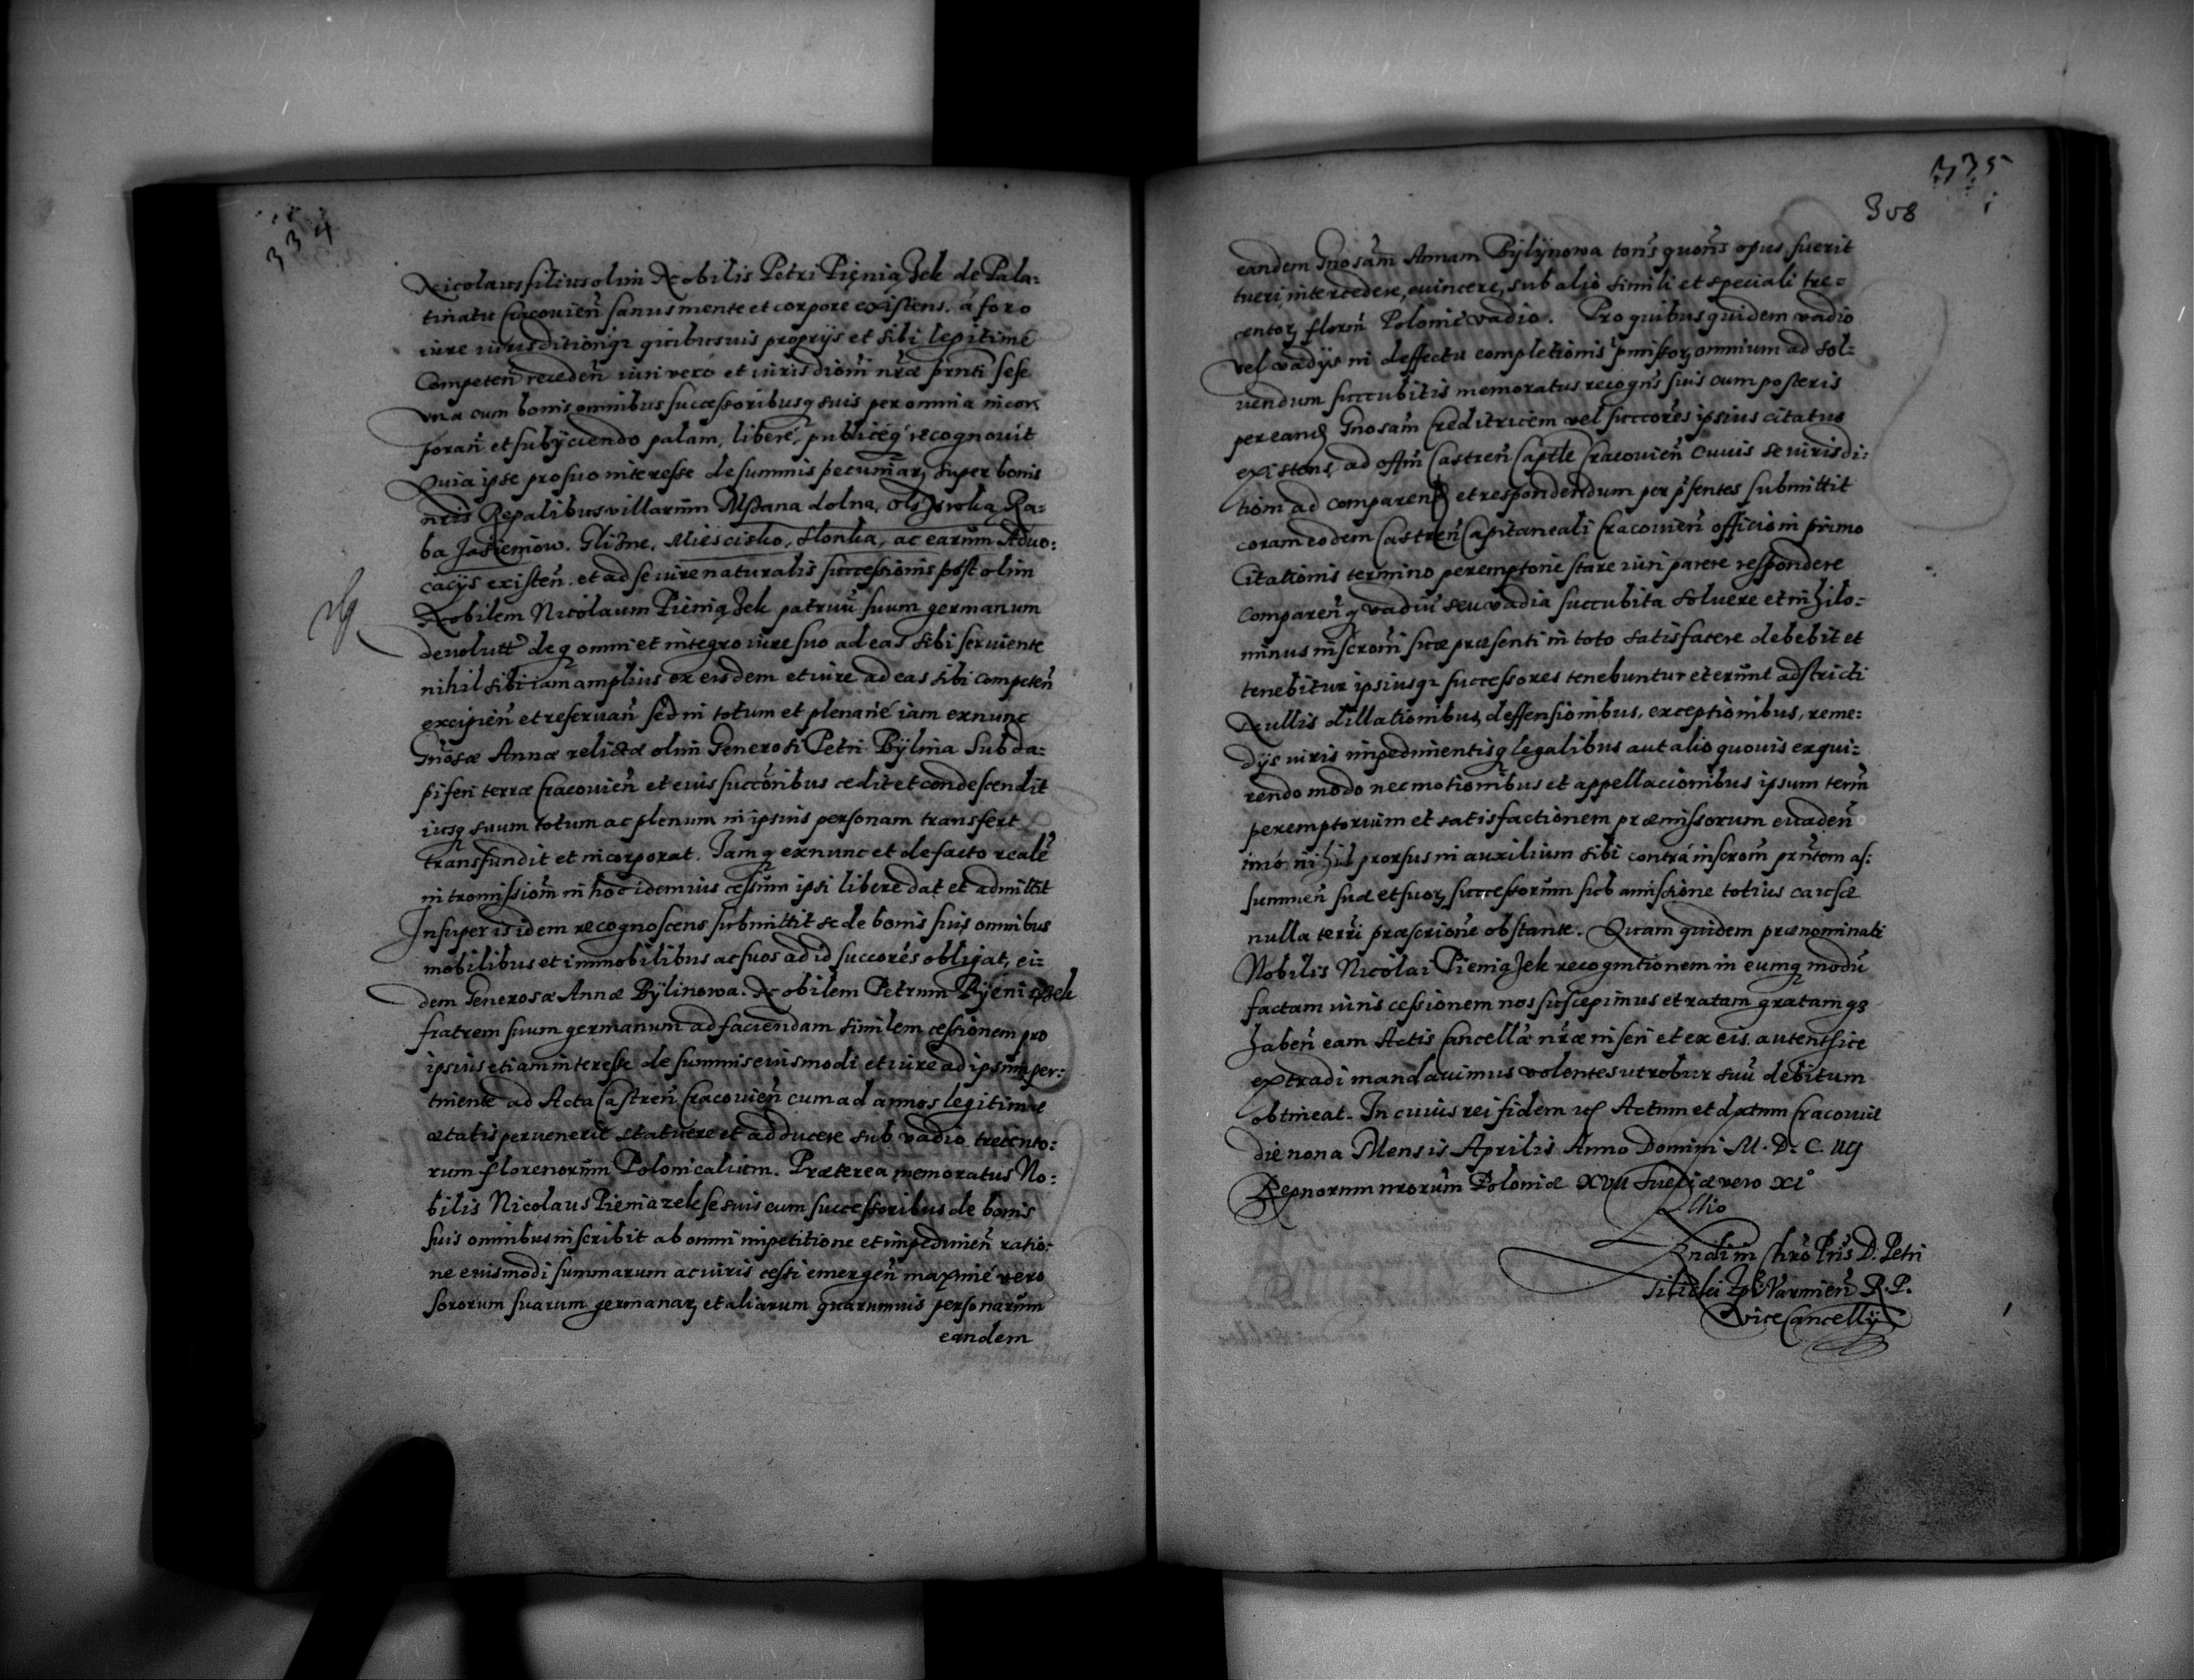 334
Nicolaus filius olim Nobilis Petri Pięniążek de Pala:
tinatu Cracouien̄ sanus mente et corpore existens. a foro
iure iurisditioniqȝ quibusuis proprijs et sibi legitimé
Competen̄ receden̄ iuri vero et iurisdiom̄ nr̄æ pr̄nti sese
vna cum bonis omnibus successoribusqȝ suis per omnia incor:
poran̄ et subÿciendo palam, liberé, publicéqȝ recognouit
Quia ipse pro suo interesse de summis pecuniarȝ super bonis
nr̄is Regalibus villarum Mszana dolna, Olszowka, Ra:
ba Jasieniow. Glisne, Miescisko, Slonka, ac earum Aduo:
cacÿs existen̄. et ad se iure naturalis successionis post olim
Nobilem Nicolaum Pieniążek patruū suum germanum
deuolutt̄ deqȝ omni et integro iure suo ad eas sibi seruiente
nihil sibi iam amplius ex eisdem et iure ad eas sibi competen̄
excipien̄ et reseruan̄ sed in totum et plenarié iam exnunc
Gn̄osæ Annæ relictæ olim Generosi Petri Bÿlina Subda:
piferi terræ Cracouien̄ et eius succōribus cedit et condescendit
iusqȝ suum totum ac plenum in ipsius personam transfert
transfundit et incorporat. Iamqȝ exnunc et defacto realē
intromissiom̄ in hoc idem ius cessum ipsi libere dat et admittit
Insuper is idem recognoscens submittit se de bonis suis omnibus
mobilibus et immobilibus ac suos ad id succorēs obligat, ei:
dem Generosæ Annæ Bÿlinowa. Nobilem Petrum Piÿeniążek
fratrem suum germanum ad faciendam similem cessionem pro
ipsius etiam interesse de summis eiusmodi et iure ad ipsum per:
tinente ad Acta Castren̄ Cracouien̄ cum ad annos legitimæ
ætatis peruenerit statuere et adducere sub vadio trecento:
rum florenorum Polonicalium. Præterea memoratus No:
bilis Nicolaus Pieniazek se suis cum successoribus de bonis
suis omnibus inscribit ab omni impetitione et impedimen̄ ratio:
ne eiusmodi summarum ac iuris cessi emergen̄ maximé vero
sororum suarum germanarȝ et aliarum quarumuis personarum
eandem
335
308
eandem Gnosam̄ Annam Bÿlÿnowa totn̄s quotn̄s opus fuerit
tueri, intercedere, euincere, sub alio simili et speciali tre:
centorȝ florm̄ Polonic̄ vadio. Pro quibus quidem vadio
vel vadÿs in deffectu completionis p̄missorȝ omnium ad sol:
uendum succubitis memoratus recogn̄s suis cum posteris
per eandȝ Gnosam̄ Creditricem vel succorēs ipsius citatus
existens, ad offm̄ Castren̄ Captle Cracouien̄ cuius se iurisdi:
tiom̄ ad comparendȝ et respondendum per p̄sentes submittit
coram eodem Castren̄ Capitaneali Cracouien̄ officio in primo
Citationis termino peremptorié stare iuri parere respondere
comparen̄qȝ vadiū seu vadia succubita soluere et nihilo:
minus inscrom̄i suæ præsenti in toto satisfacere debebit et
tenebitur ipsiusqȝ successores tenebuntur et erunt adstricti
Nullis dillationibus, deffensionibus, exceptionibus, reme:
dÿs iuris impedimentisqȝ legalibus aut alio quouis exqui:
rendo modo nec motionibus et appellacionibus ipsum term̄
peremptorium et satisfactionem præmissorum euaden̄
imó nihil prorsus in auxilium sibi contrá inscrom̄ prn̄tem as:
summen̄ suæ et suorȝ successorum sub amissione totius causæ
nulla terri præscrione obstante. Quam quidem prænominati
Nobilis Nicolai Pieniążek recognitionem in eumqȝ modū
factam iuris cessionem nos suscepimus et ratam gratamqȝ
haben̄ eam Actis Cancellæ nr̄æ inseri et ex eis autenthice
extradi mandauimus volentes ut robur suū debitum
obtineat. In cuius rei fidem ꝛc Actum et datum Cracouiæ
die nona Mensis Aprilis Anno Domini M. D. C. IIIJ
Regnorum nrorum Poloniæ XVII Sueciæ vero XI°
R̄ndi in Chrō Pr̄is D. Petri
Tilicki Ep̄i Varmien̄ R. P.
ViceCancellÿ